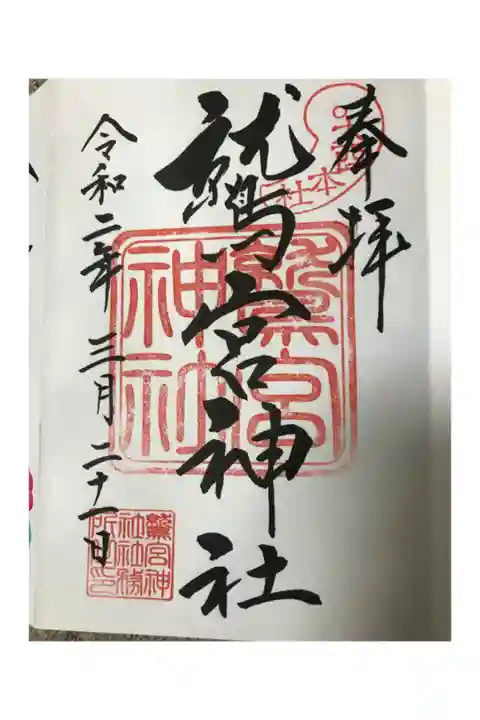 奉拝
本社
鷲宮神社
鷲宮
神社
令和二年三月二十一日
鷲宮神
社社務
所印